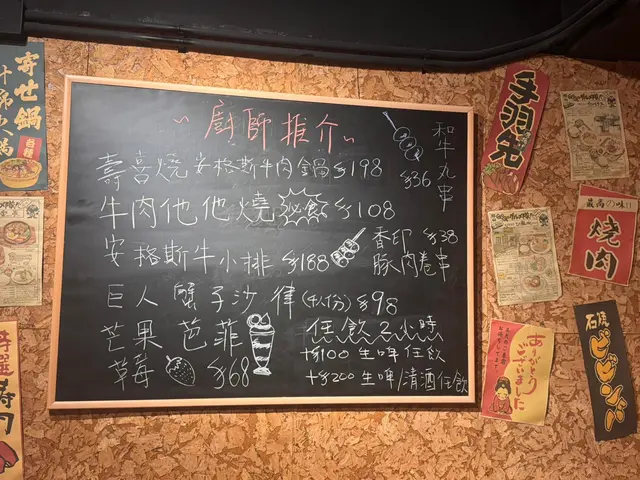 ~ 廚師推介 ~
壽喜燒 安格斯牛肉鍋 $198
牛肉他他燒 必食 $108
安格斯牛小排 $188
巨人蟹子沙律 (4人份) $98
芒果芭菲
草莓 $68
和牛丸串
$36
香印 $38
豚肉卷串
任飲2小時
+$100 生啤任飲
+$200 生啤/清酒任飲
寄せ鍋
手羽先
最高の味!!
焼肉
ありがとう
ございました
石焼
ビビンバ